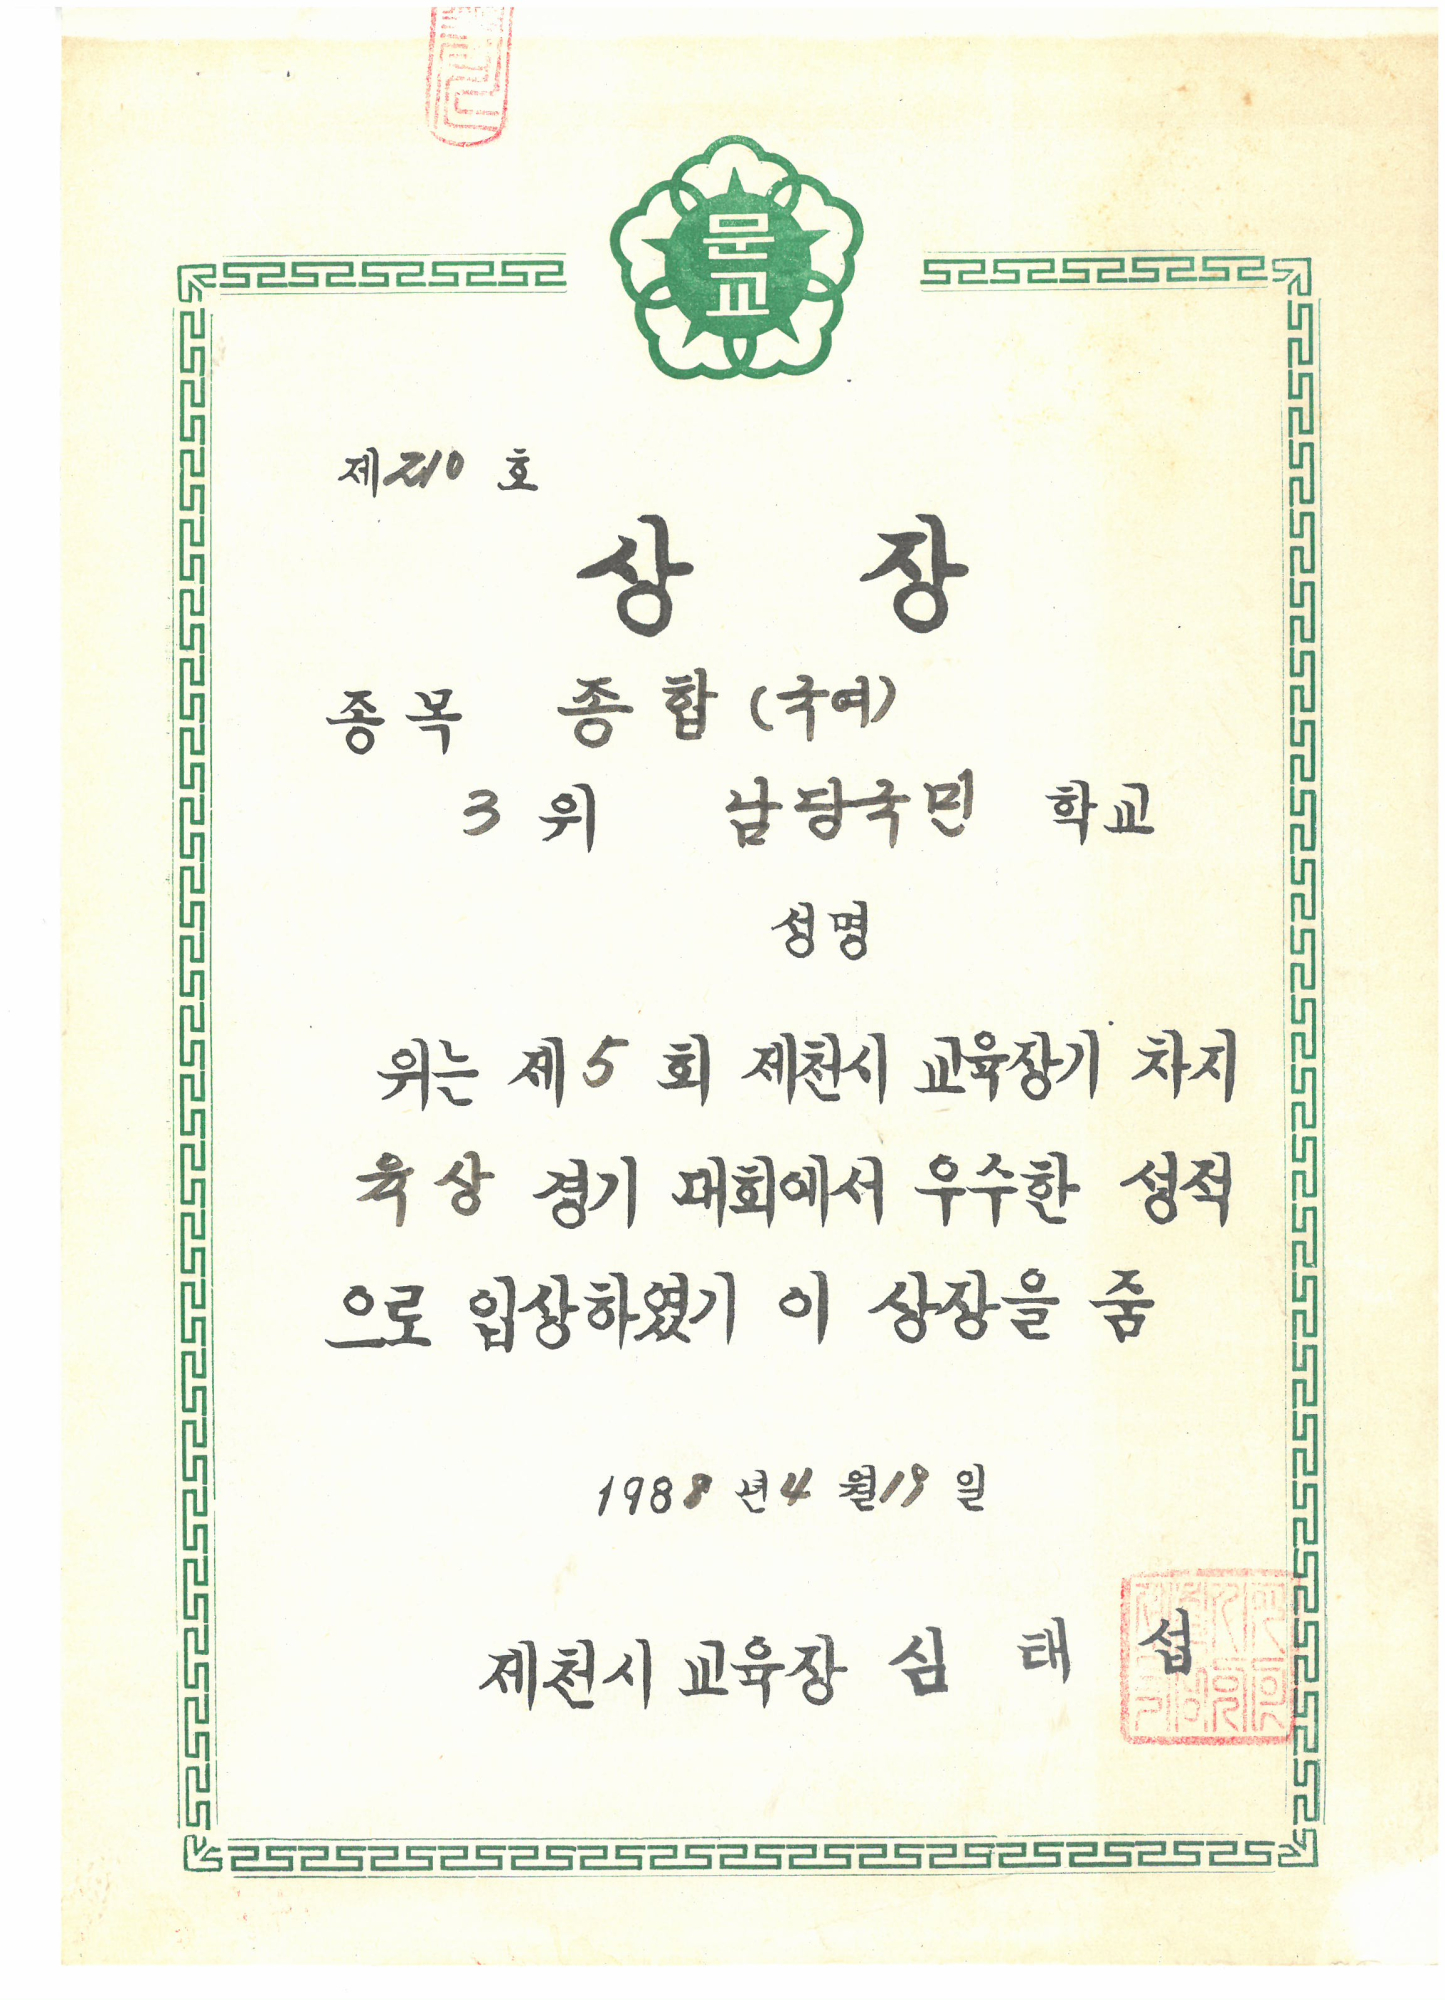 문
교
제210 호
상 장
종목 종합 (국여)
3 위 남당국민 학교
성명
위는 제5회 제천시 교육장기 차지
육상 경기 대회에서 우수한 성적
으로 입상하였기 이 상장을 줌
1988년 4월 19일
제천시 교육장 심 태 섭